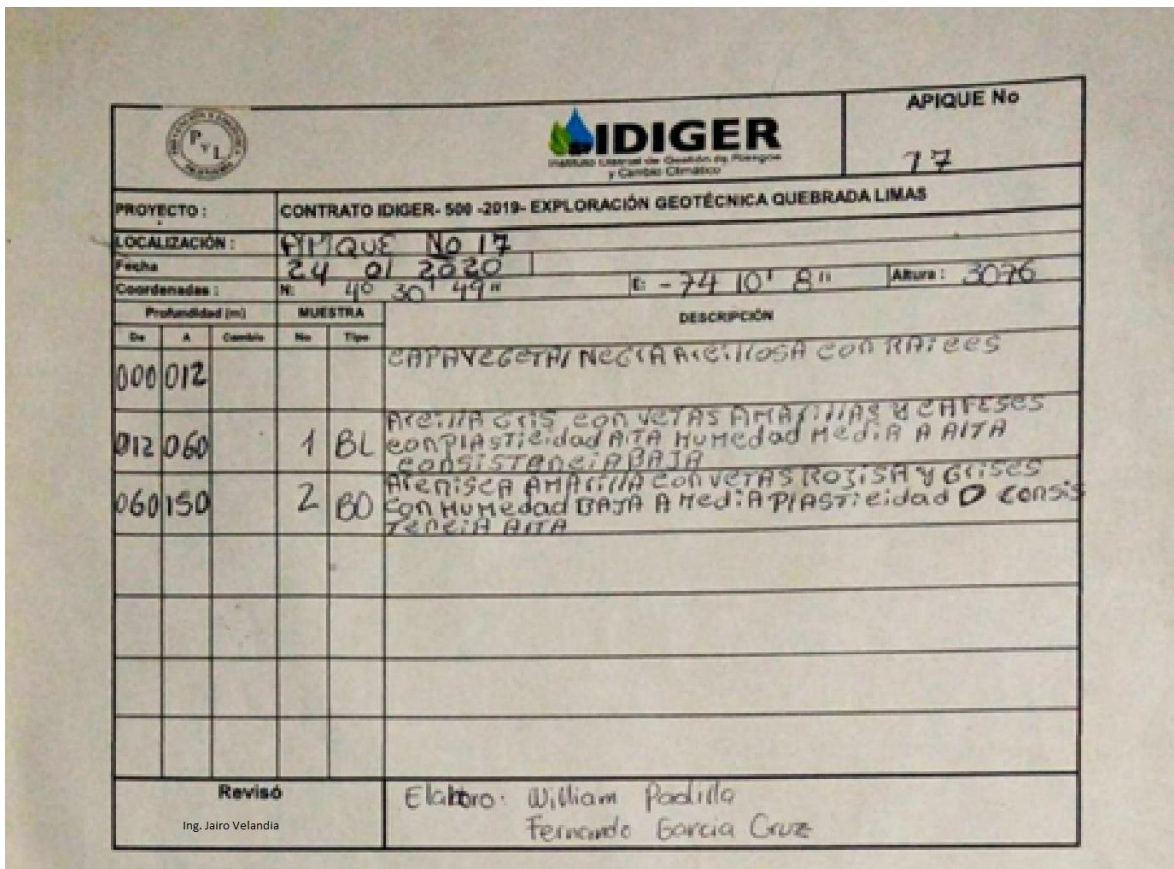 P y L
IDIGER
Instituto Distrital de Gestión de Riesgos
y Cambio Climático
APIQUE No
17
PROYECTO :
CONTRATO IDIGER- 500 -2019- EXPLORACIÓN GEOTÉCNICA QUEBRADA LIMAS
LOCALIZACIÓN :
APIQUE No 17
Fecha
24 01 2020
Coordenadas :
N: 4° 30' 49"
E: -74 10' 8"
Altura : 3076
Profundidad (m)
MUESTRA
DESCRIPCIÓN
De A Cambio No Tipo
000 012 CAPAVEGETAl NEGRA ARCillOSA con RAices
012 060 1 BL ArcillA Gris con VETAS AMArillAS y CAFESes
conPlASTicidad AlTA HuMedad MediA A AlTA
consisTenciA BAJA
060 150 2 BO ArenisCA AMArillA con VETAS ROJISA y Grises
con HuMedad BAJA A MediA PlASTicidad O consis
TenciA AlTA
Revisó
Ing. Jairo Velandia
Elaboro: William Padilla
Fernando Garcia Cruz